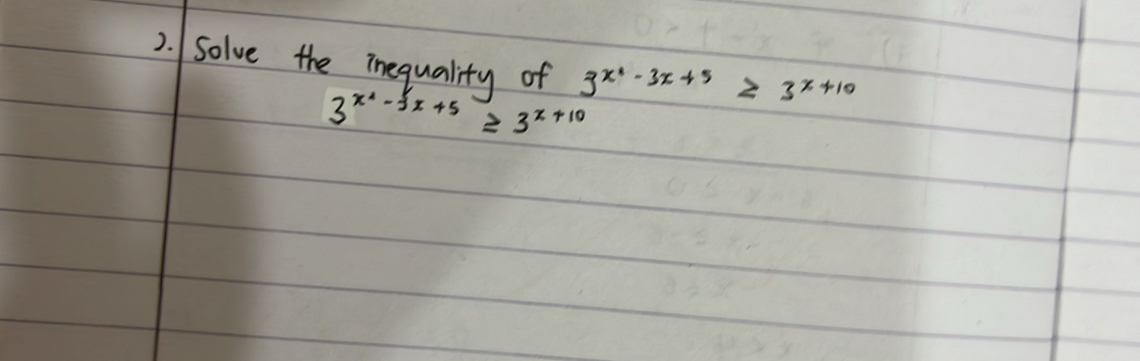 2. Solve the inequality of 3^{x² - 3x + 5} ≥ 3^{x + 10}
3^{x² - 3x + 5} ≥ 3^{x + 10}